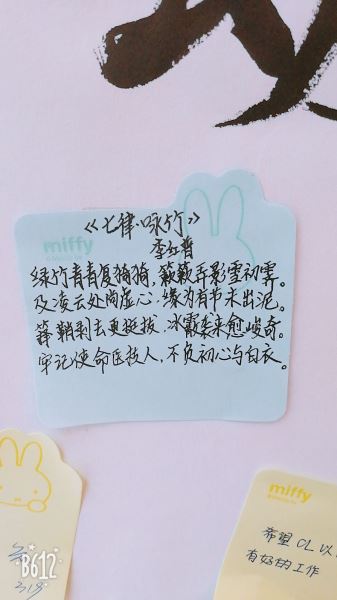 miffy
《七律·咏竹》
李红普
绿竹青青复猗猗,簌簌弄影雪初霁。
及凌云处尚虚心,缘为有节未出泥。
箨鞘剥去更挺拔,冰霰袭来愈峻奇。
牢记使命医技人,不负初心与白衣。
miffy
希望CL以
有好的工作
B612